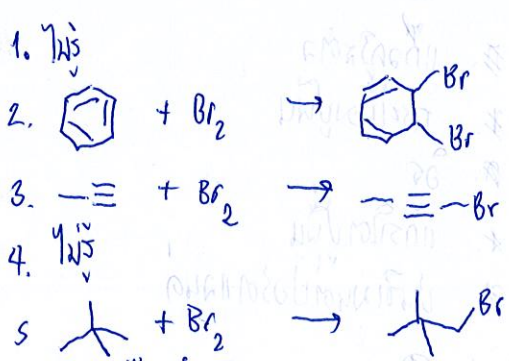 1. ไม่รู้
2. + Br2 → Br Br
3. + Br2 → Br
4. ไม่รู้
5 + Br2 → Br